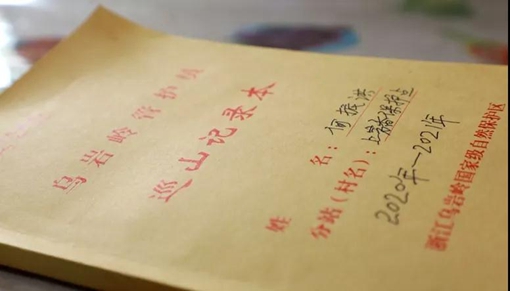 乌岩岭管护站
巡山记录本
姓 名：何振洪
分站（村名）：上岱保护点
2020年—2021年
浙江乌岩岭国家级自然保护区